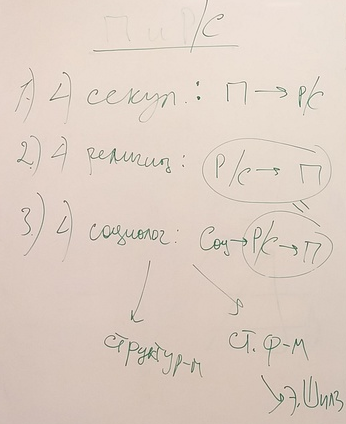 П и Р/С
1.) ∠) секул.: П → Р/С
2.) ∠) религиоз: Р/С → П
3.) ∠) социолог: Соц → Р/С → П
структур-м
ст. ф-м
Э. Шилз